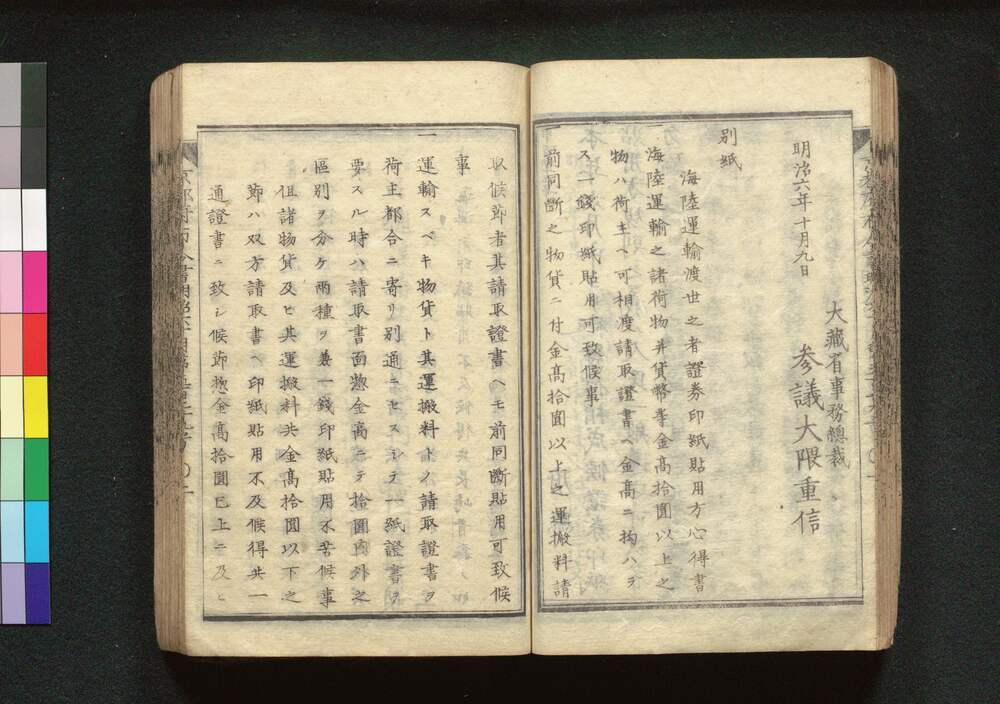 明治六年十月九日
大藏省事務總裁
參議大隈重信
別紙
海陸運輸渡世之者證券印紙貼用方心得書
一海陸運輸之諸荷物并貨幣等金高拾圓以上之
物ハ荷主ヘ可相渡請取證書ヘ金高ニ拘ハラ
ス一錢印紙貼用可致候事
一前同斷之物貨ニ付金高拾圓以上之運搬料請
取候節者其請取證書ヘモ前同斷貼用可致候
事
一運輸スベキ物貨ト其運搬料トノ請取證書ヲ
荷主都合ニ寄リ別通ニセスシテ一紙證書ヲ
要スル時ハ請取書面惣金高ニテ拾圓内外之
區別ヲ分ケ兩種ヲ兼一錢印紙貼用不苦候事
但諸物貨及ヒ其運搬料共金高拾圓以下之
節ハ双方請取書ヘ印紙貼用不及候得共一
通證書ニ致シ候節惣金高拾圓已上ニ及ヒ